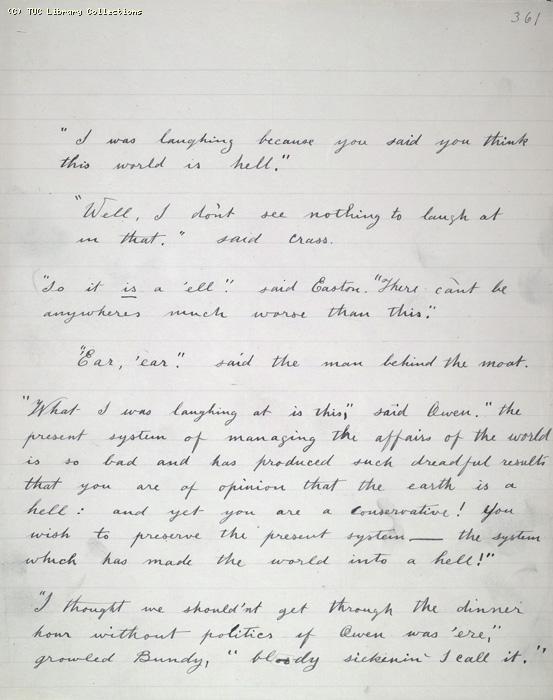 (C) TUC Library Collections
361
"I was laughing because you said you think
this world is hell."
"Well, I don't see nothing to laugh at
in that." said Crass.
"So it is a 'ell". said Easton. "There can't be
anywheres much worse than this".
"'Ear, 'ear". said the man behind the moat.
"What I was laughing at is this," said Owen. "the
present system of managing the affairs of the world
is so bad and has produced such dreadful results
that you are of opinion that the earth is a
hell: and yet you are a Conservative! You
wish to preserve the present system — the system
which has made the world into a hell!"
"I thought we should'nt get through the dinner
hour without politics if Owen was 'ere,"
growled Bundy, "bloody sickenin' I call it."